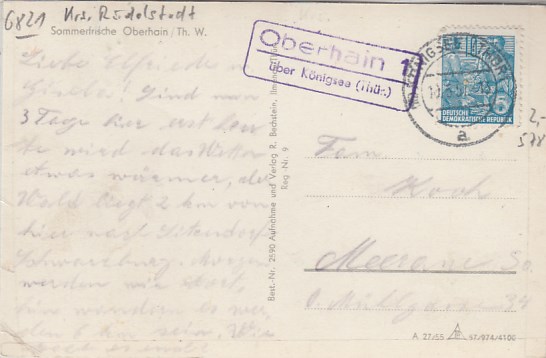 6821 Krs. Rudolstadt
Sommerfrische Oberhain/Th. W.
Oberhain 1
über Königsee (Thür.)
KÖNIGSEE (THÜR)
a
DEUTSCHE
DEMOKRATISCHE REPUBLIK
5
2,-
578
Liebe Elfriede u.
Gisela! Sind nun
3 Tage hier erst heu
te wird das Wetter
etwas wärmer, der
Wald liegt 2 km von
hier nach Sitzendorf
Schwarzburg. Morgen
werden wir
wandern es wer
den 8 km sein. Wir
Best.-Nr. 2690 Aufnahme und Verlag R. Bechstein, Ilmenau/Thür.
Reg.-Nr. 9
Fam.
Koch
Meerane Sa.
34
A 27/55 57/974/4106